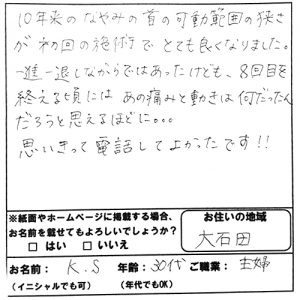 10年来のなやみの首の可動範囲の狭さ
が初回の施術でとても良くなりました。
一進一退しながらではあったけども、8回目を
終える頃には あの痛みと動きは何だったん
だろうと思えるほどに。。。
思いきって電話してよかったです!!
※紙面やホームページに掲載する場合、
お名前を載せてもよろしいでしょうか?
□ はい □ いいえ
お住いの地域
大石田
お名前: K.S 年齢: 30代 ご職業: 主婦
(イニシャルでも可) (年代でもOK)